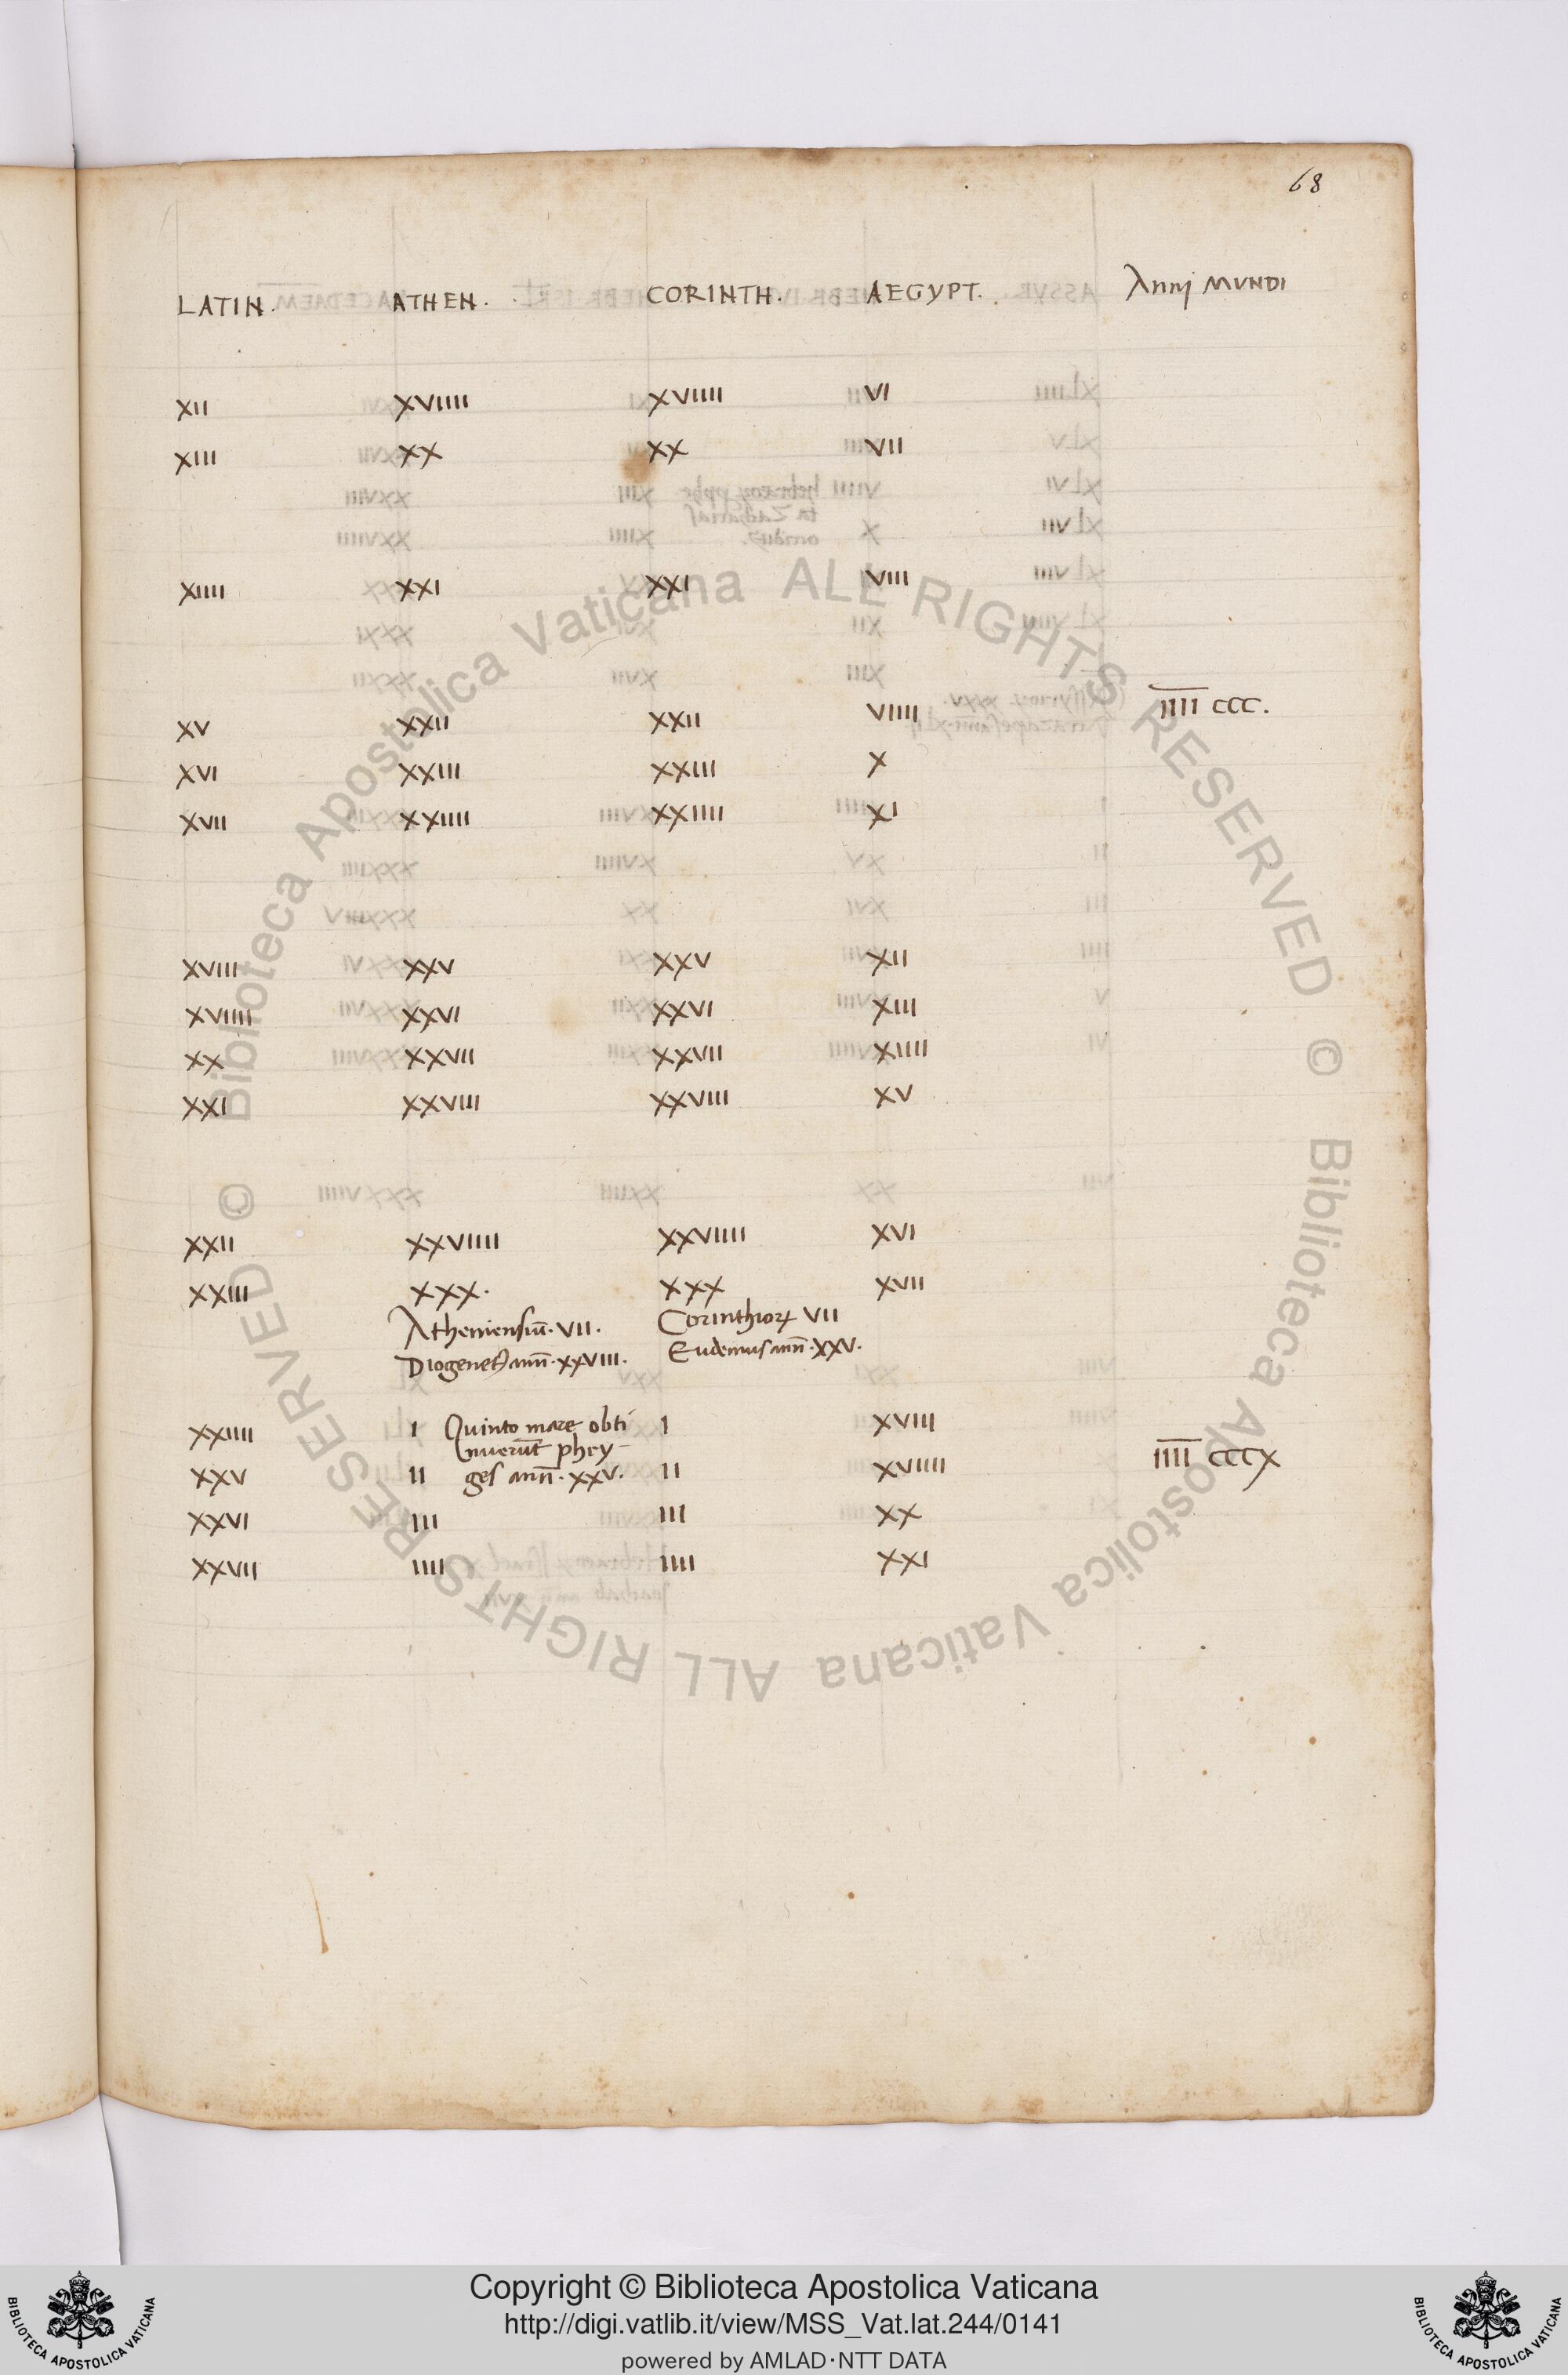 68
LATIN. ATHEN. CORINTH. AEGYPT. Annj MVNDI
XII XVIIII XVIIII VI
XIII XX XX VII
XIIII XXI XXI VIII
XV XXII XXII VIIII I̅I̅I̅I̅ CCC.
XVI XXIII XXIII X
XVII XXIIII XXIIII XI
XVIII XXV XXV XII
XVIIII XXVI XXVI XIII
XX XXVII XXVII XIIII
XXI XXVIII XXVIII XV
XXII XXVIIII XXVIIII XVI
XXIII XXX. XXX XVII
Atheniensiū. VII. Corinthioꝝ VII
Diogenetꝰ ann̄. XXVIII. Eudemus ann̄. XXV.
XXIIII I Quinto mare obti I XVIII
nuerūt phry-
XXV II ges ann̄. XXV. II XVIIII I̅I̅I̅I̅ CCCX
XXVI III III XX
XXVII IIII IIII XXI
Biblioteca Apostolica Vaticana ALL RIGHTS RESERVED ©
Biblioteca Apostolica Vaticana ALL RIGHTS RESERVED ©
Copyright © Biblioteca Apostolica Vaticana
http://digi.vatlib.it/view/MSS_Vat.lat.244/0141
powered by AMLAD·NTT DATA
BIBLIOTECA APOSTOLICA VATICANA
BIBLIOTECA APOSTOLICA VATICANA